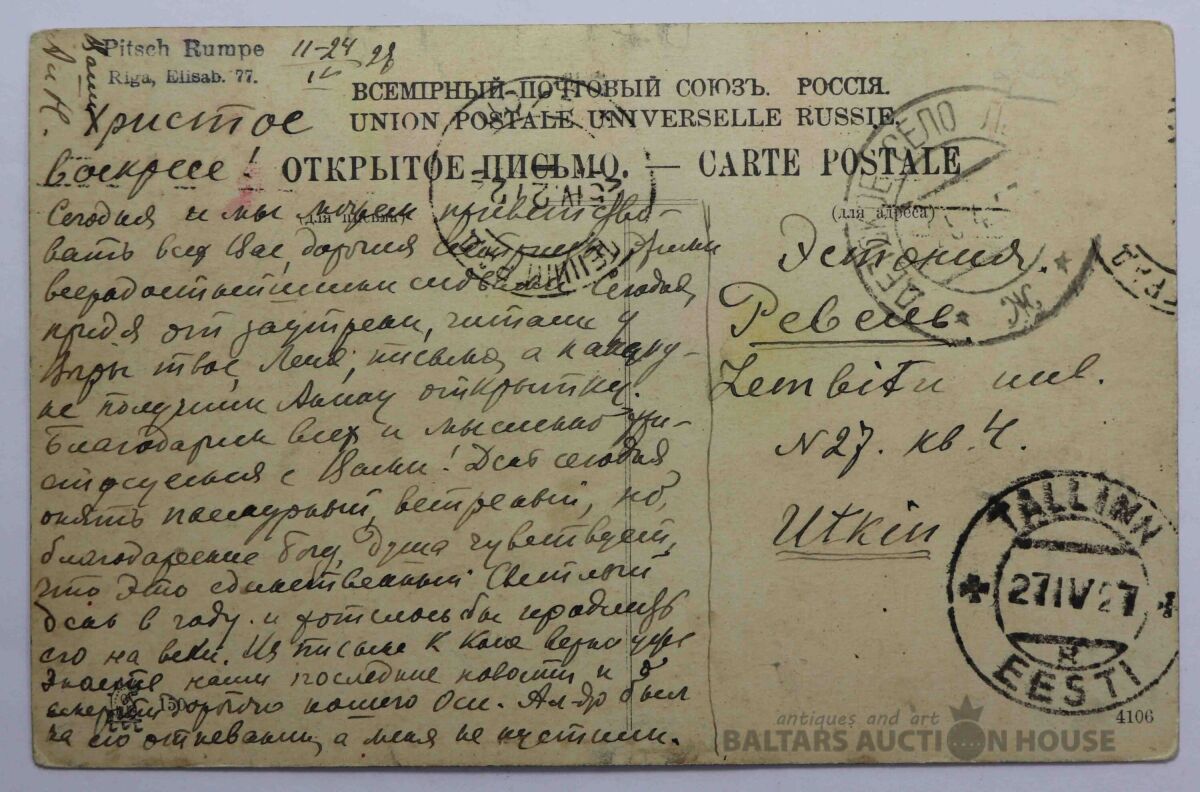 Pitsch Rumpe
Riga, Elisab. 77.
11-24 28
IV
ВСЕМІРНЫЙ ПОЧТОВЫЙ СОЮЗЪ. РОССІЯ.
UNION POSTALE UNIVERSELLE RUSSIE.
ОТКРЫТОЕ ПИСЬМО. — CARTE POSTALE
(для письма)
(для адреса)
Христос
Воскресе!
Сегодня и мы можем приветство-
вать всех Вас, дорогия
всерадостнейшими Сегодня
придя от заутрени, читали у
Веры твое, Леля, письмо, а накану-
не получили открытку.
Благодарим всех и мысленно хри-
стосуемся с Вами! День сегодня
опять пасмурный, ветреный, но,
благодарение Богу, душа чувствует,
что это единственный Светлый
день в году и хотелось бы продлить
его на веки. Из письма к Коле верно уже
знаете наши последние новости и о
смерти дорогого нашего Оси. Ал-др был
на его отпевании, а меня не пустили.
Эстония.
Ревель
Lembitu ul.
N27. кв. 4.
Utkin
ДЕТСКОЕ СЕЛО
Ж
IV 27
TALLINN
27 IV 27
EESTI
150
4106
antiques and art
BALTARS AUCTION HOUSE